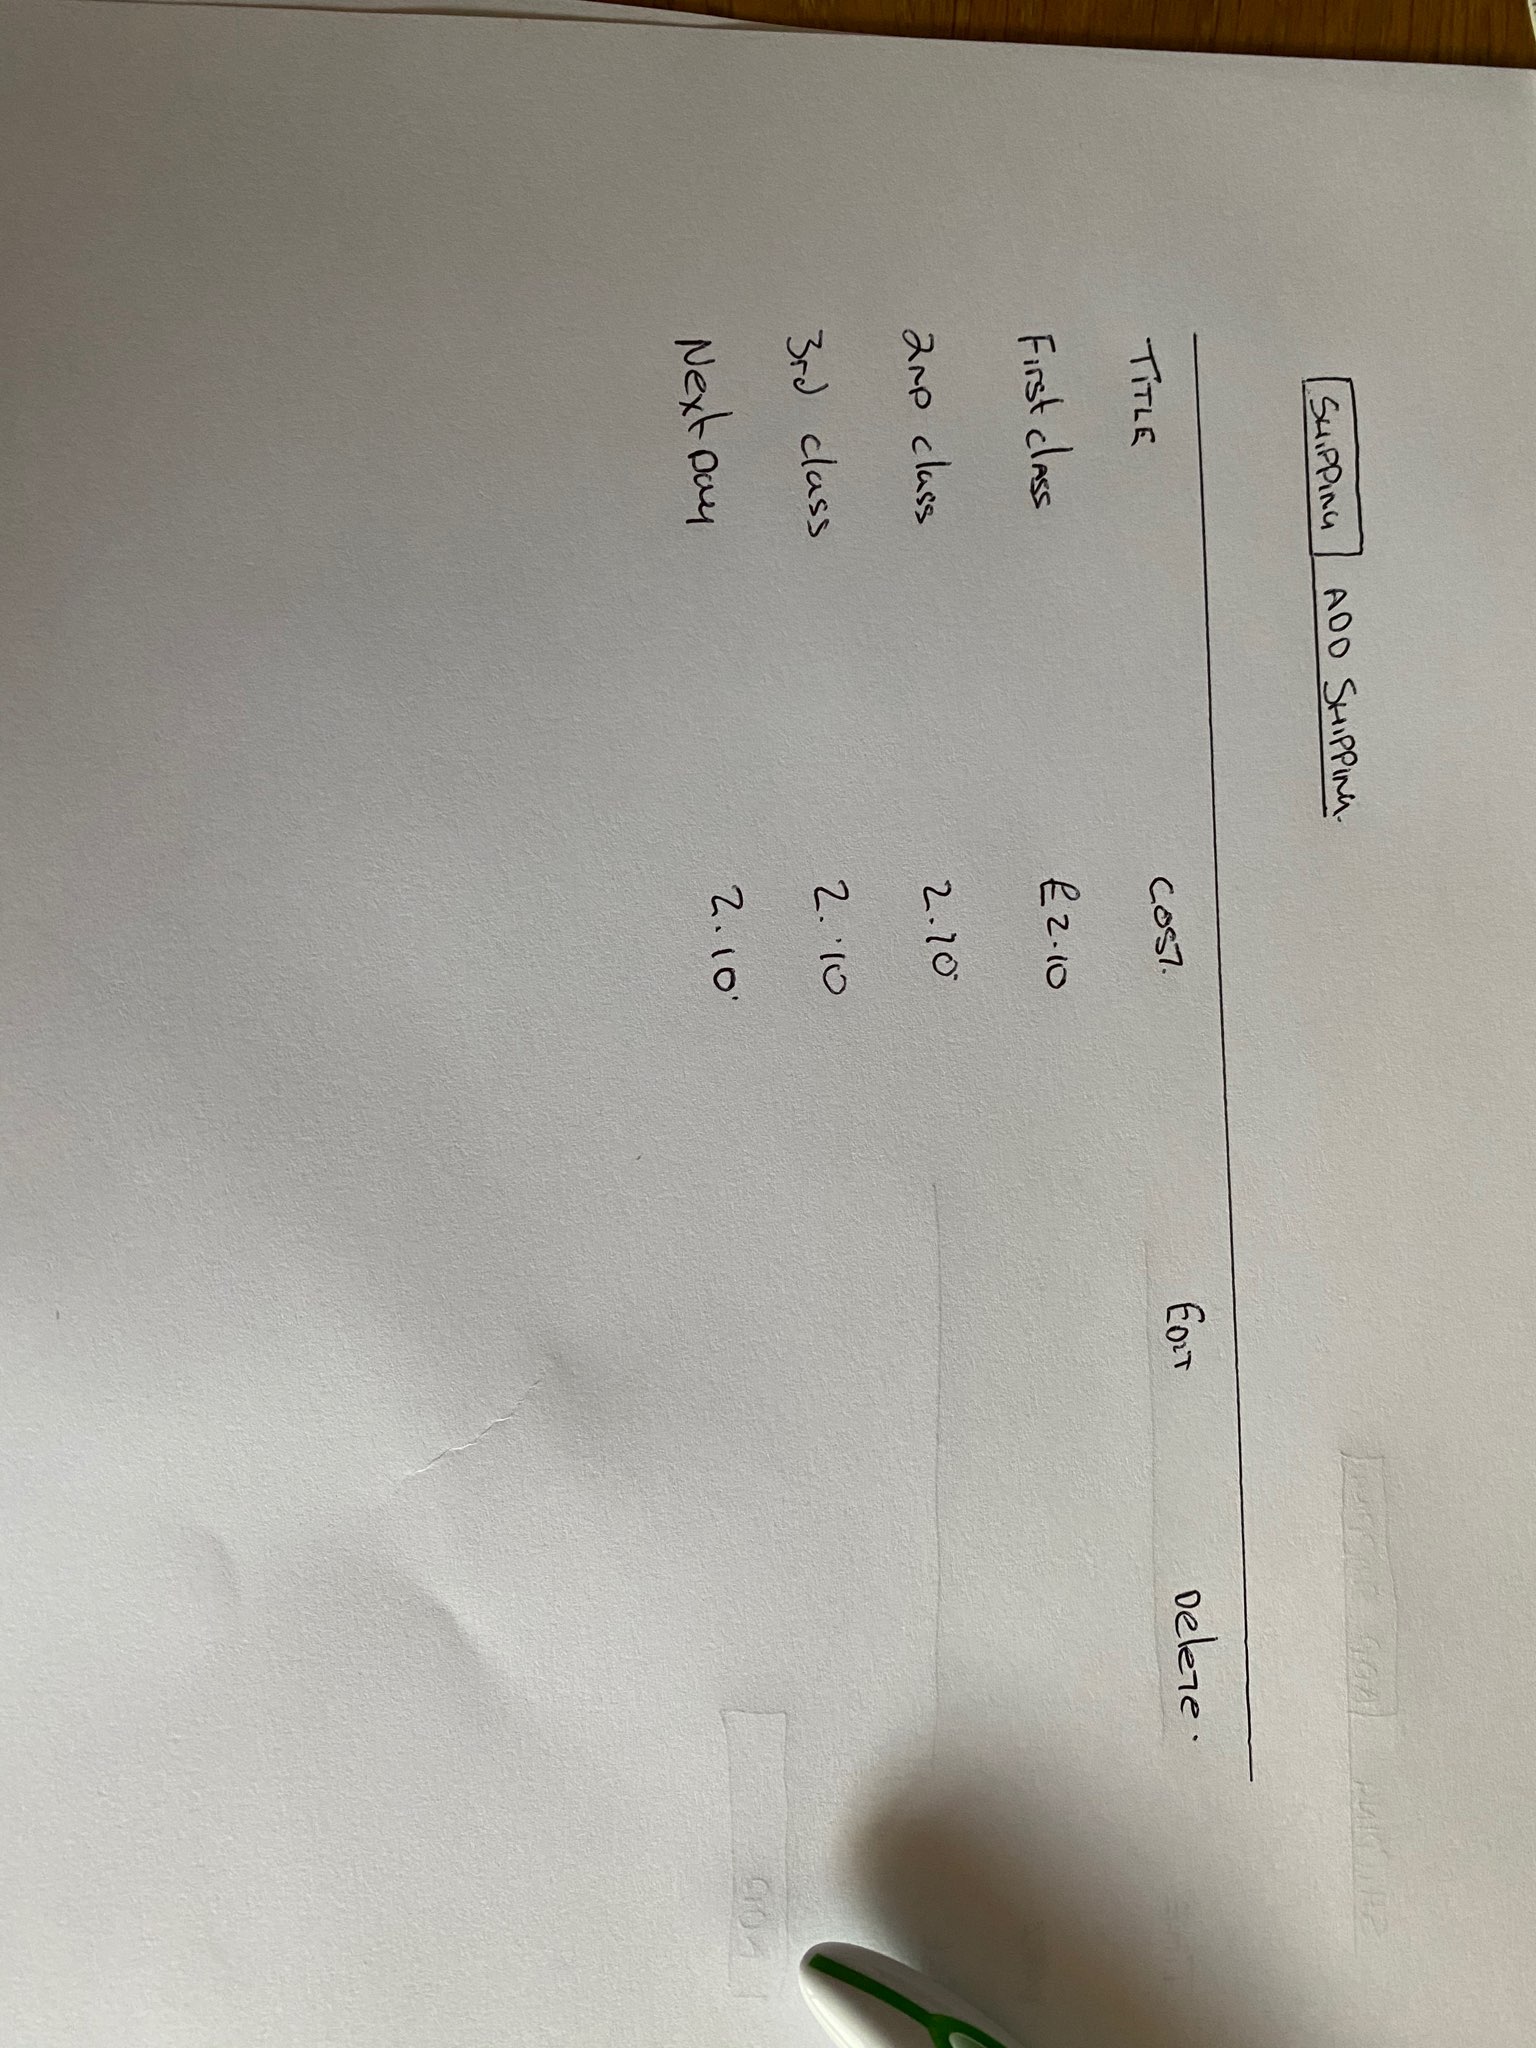 SHIPPING ADD SHIPPING.
TITLE COST. EDIT Delete.
First class £2.10
2nd class 2.10
3rd class 2.10
Next Day 2.10